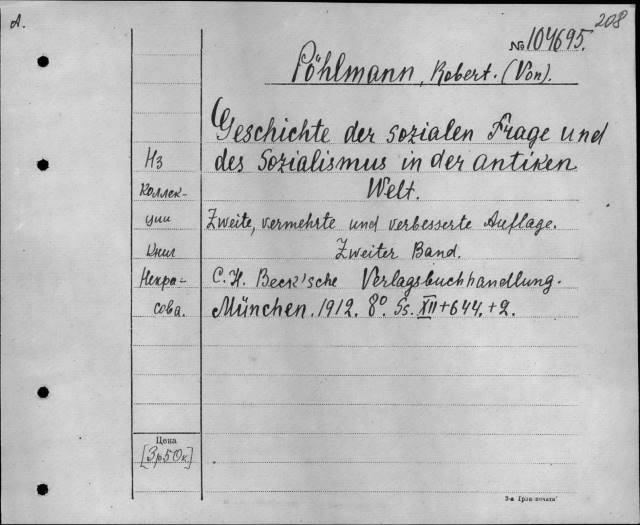 A.
208
№ 104695.
Pöhlmann, Robert. (Von).
Geschichte der sozialen Frage und
des Sozialismus in der antiken
Welt.
Zweite, vermehrte und verbesserte Auflage.
Zweiter Band.
C. H. Beck'sche Verlagsbuchhandlung.
München. 1912. 8° Ss. XII + 644. + 2.
Из
коллек-
ции
книг
Некра-
сова.
Цена
[3р50к]
3-я Грав. печата